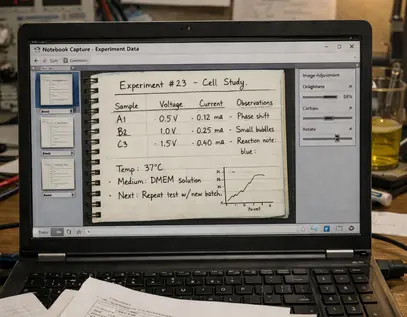 Notebook Capture - Experiment Data
Image Adjustment
Experiment #23 - Cell Study
Sample Voltage Current Observations
A1 0.5 V 0.12 ma Phase shift
B2 1.0 V 0.25 ma Small bubbles
C3 1.5 V 0.40 ma Reaction note:
blue:
Temp: 37°C
Medium: DMEM solution
Next: Repeat test w/new batch.
Rotate